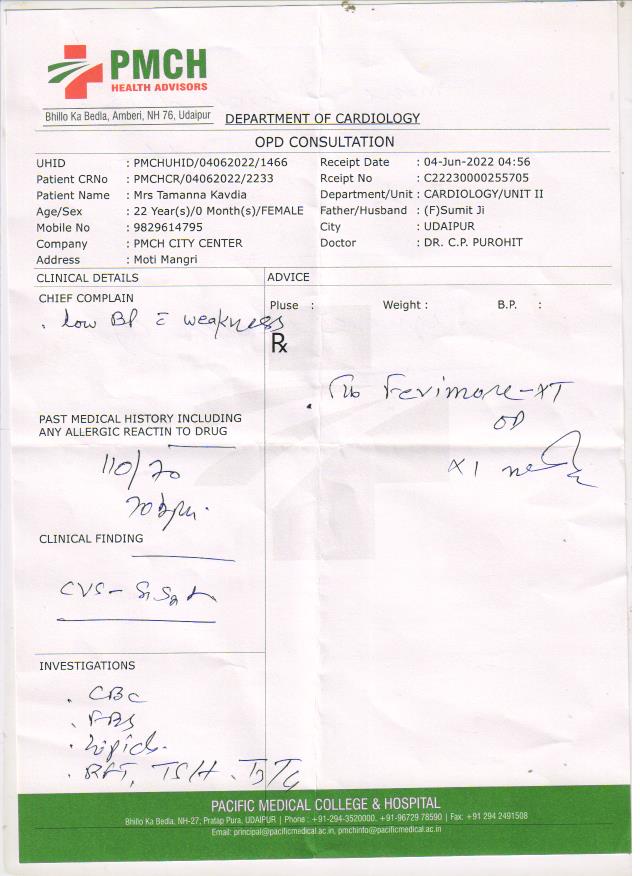 PMCH
HEALTH ADVISORS
Bhillo Ka Bedla, Amberi, NH 76, Udaipur
DEPARTMENT OF CARDIOLOGY
OPD CONSULTATION
UHID : PMCHUHID/04062022/1466
Receipt Date : 04-Jun-2022 04:56
Patient CRNo : PMCHCR/04062022/2233
Rceipt No : C22230000255705
Patient Name : Mrs Tamanna Kavdia
Department/Unit : CARDIOLOGY/UNIT II
Age/Sex : 22 Year(s)/0 Month(s)/FEMALE
Father/Husband : (F)Sumit Ji
Mobile No : 9829614795
City : UDAIPUR
Company : PMCH CITY CENTER
Doctor : DR. C.P. PUROHIT
Address : Moti Mangri
CLINICAL DETAILS
ADVICE
CHIEF COMPLAIN
Pluse : Weight : B.P. :
. low BP c̄ weakness
Rx
Ferimore-XT
OD
X 1
PAST MEDICAL HISTORY INCLUDING
ANY ALLERGIC REACTIN TO DRUG
110/70
70 bpm.
CLINICAL FINDING
CVS - S1S2
INVESTIGATIONS
. CBC
. FBS
. Lipids.
. RFT, TSH, T3/T4
PACIFIC MEDICAL COLLEGE & HOSPITAL
Bhillo Ka Bedla, NH-27, Pratap Pura, UDAIPUR | Phone : +91-294-3520000. +91-96729 78590 | Fax: +91 294 2491508
Email: principal@pacificmedical.ac.in, pmchinfo@pacificmedical.ac.in